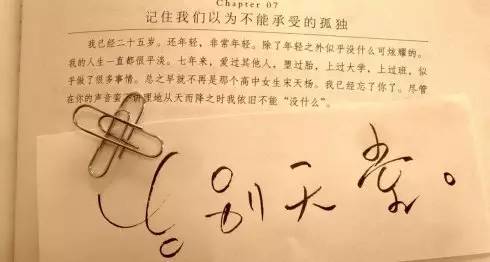 Chapter 07
记住我们以为不能承受的孤独
我已经二十五岁。还年轻，非常年轻。除了年轻之外似乎没什么可炫耀的。
我的人生一直都很平淡。七年来，爱过其他人，堕过胎，上过大学，上过班，似
乎做了很多事情。总之早就不再是那个高中女生宋天杨。我已经忘了你了。尽管
在你的声音蛮不讲理地从天而降之时我依旧不能“没什么”。
告别天堂。